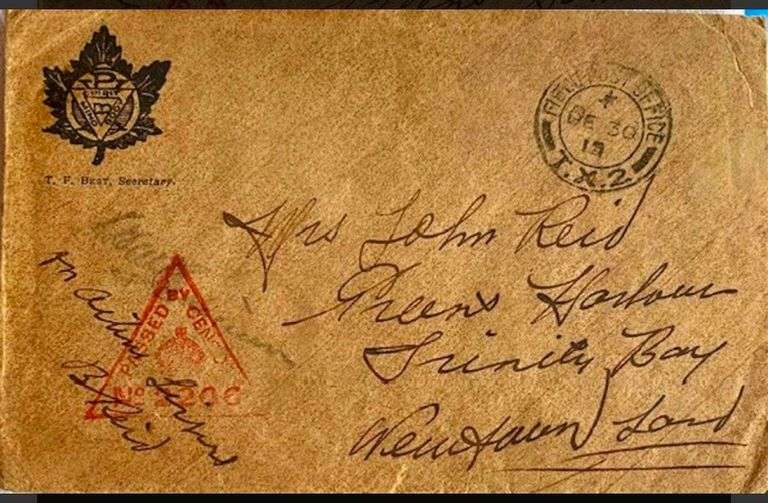 T. F. BEST, Secretary.
FIELD POST OFFICE
DE 30
T.X.2.
Mrs John Reid
Greens Harbour
Trinity Bay
Newfound Land
On Active Service
B Reid
PASSED BY CEN
No 206